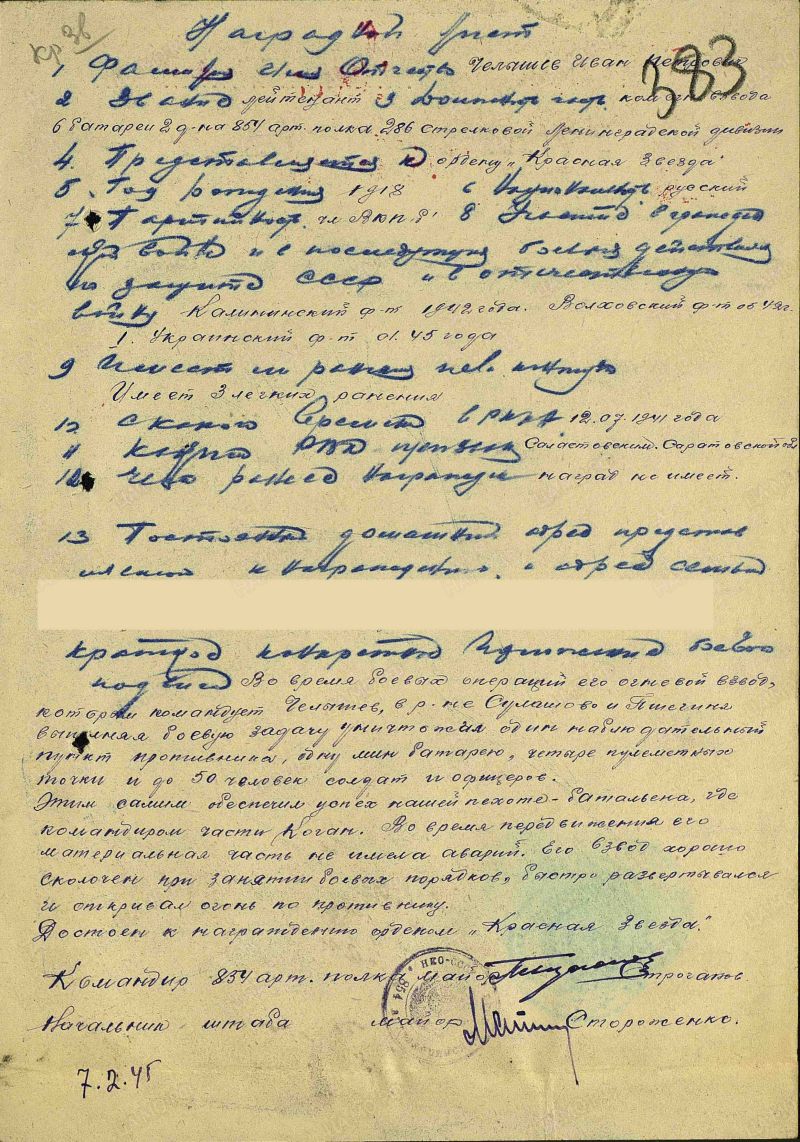 Кр Зв
383
Наградной лист
1 Фамилия Имя Отчество Челышев Иван Петрович
2 Звание лейтенант 3 ком. огн. взвода
6 батареи 2 д-на 854 арт. полка 286 стрелковой Ленинградской дивизии
4. Представляется к ордену „Красная Звезда"
5. Год рождения 1918 6 русский
7 Партийность чл ВКП б 8 Участие в гражданс
войне и в последующих боевых действиях
по защите СССР и в отечественную
войну Калининский ф-т 1942 года. Волховский ф-т 42 г.
1. Украинский ф-т 01.45 года
9 Имеет ли ранения
Имеет 3 легких ранения
с какого времени в РККА 12.07.1941 года
11 Каким РВК призван Саратовской обл
12 Чем ранее награжден наград не имеет.
13 Постоянный домашний адрес представ
к награждению и адрес семьи
краткое конкретное изложение боевого
подвига Во время боевых операций его огневой взвод,
которым командует Челышев, в р-не Сулашово и
выполняя боевую задачу уничтожил один наблюдательный
пункт противника, одну мин батарею, четыре пулеметных
точки и до 50 человек солдат и офицеров.
Этим самим обеспечил успех нашей пехоте-батальена, где
командиром части Коган. Во время передвижения его
материальная часть не имела аварий. Его взвод хорошо
сколочен при занятии боевых порядков, быстро развертывался
и открывал огонь по противнику.
Достоен к награждению орденом „Красная Звезда".
Командир 854 арт. полка майор Строганов
Начальник штаба майор Стороженко.
7.2.45